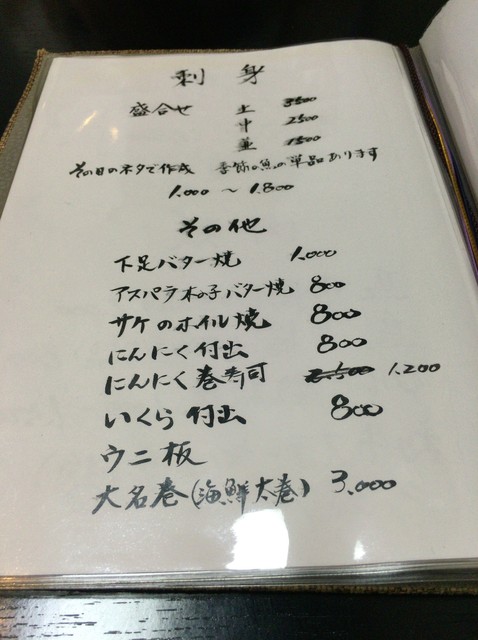 刺身
盛合せ 上 3500
中 2500
並 1500
その日のネタで作成 季節の魚の単品あります
1.000 〜 1.800
その他
下足バター焼 1.000
アスパラ木の子バター焼 800
サケのホイル焼 800
にんにく付出 800
にんにく巻寿司 2.500 1.200
いくら付出 800
ウニ板
大名巻(海鮮太巻) 3.000